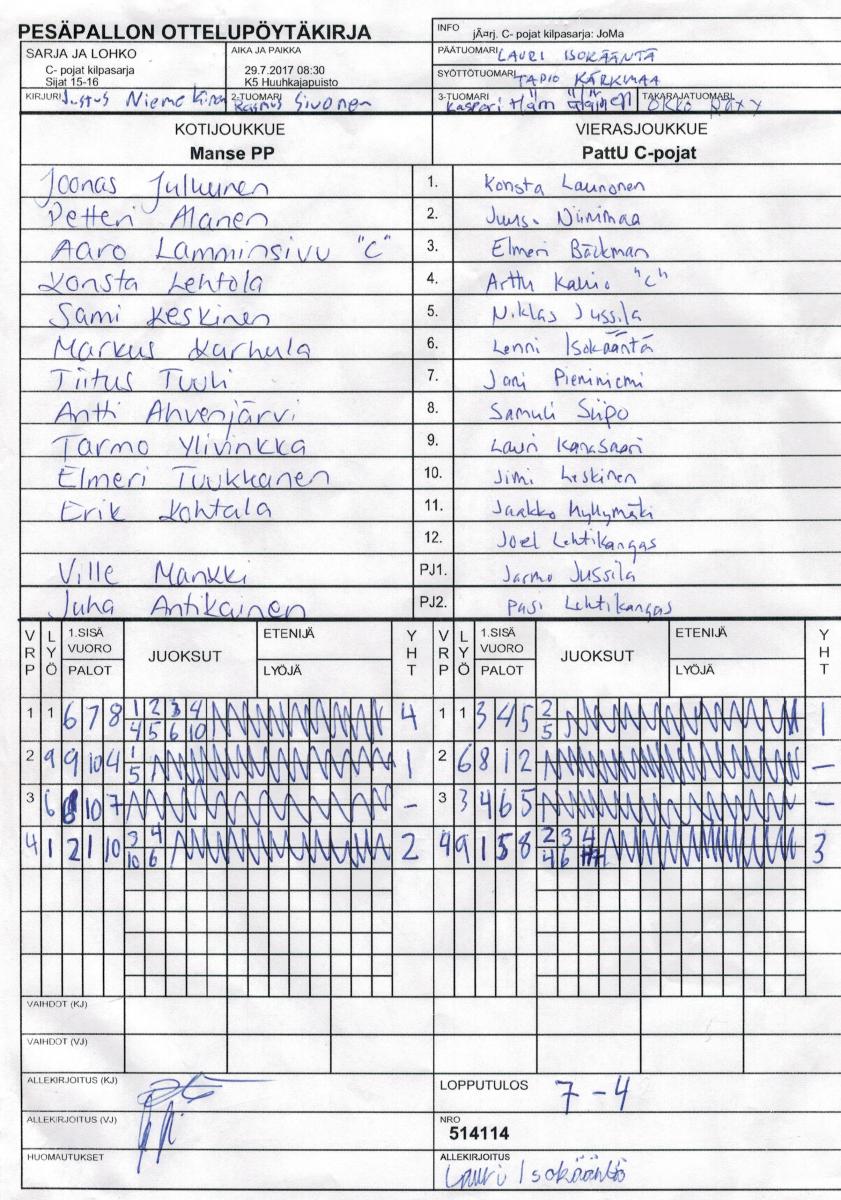 PESÄPALLON OTTELUPÖYTÄKIRJA
INFO jÃ¤rj. C- pojat kilpasarja: JoMa
SARJA JA LOHKO
C- pojat kilpasarja
Sijat 15-16
AIKA JA PAIKKA
29.7.2017 08:30
K5 Huuhkajapuisto
PÄÄTUOMARI LAURI ISOKÄÄNTÄ
SYÖTTÖTUOMARI TAPIO KÄRKMAA
KIRJURI Justus 2-TUOMARI Rasmus Sivonen 3-TUOMARI Kasperi TAKARAJATUOMARI OKKO
KOTIJOUKKUE VIERASJOUKKUE
Manse PP PattU C-pojat
Joonas Julkunen 1. Konsta Launonen
Petteri Alanen 2. Niinimaa
Aaro Lamminsivu "C" 3. Elmeri Bäckman
Konsta Lehtola 4. Arttu Kalvio "C"
Sami Keskinen 5. Niklas Jussila
Markus Karhula 6. Lenni Isokääntä
Tiitus Tuuli 7. Jani Pieniniemi
Antti Ahvenjärvi 8. Samuli Siipo
Tarmo Ylivinkka 9. Lauri
Elmeri Tuukkanen 10. Jimi Leskinen
Erik Kohtala 11. Jaakko Hyllymäki
12. Joel Lehtikangas
Ville Mankki PJ1. Jarmo Jussila
Juha Antikainen PJ2. Pasi Lehtikangas
VRP LYÖ 1.SISÄ VUORO PALOT JUOKSUT ETENIJÄ LYÖJÄ YHT VRP LYÖ 1.SISÄ VUORO PALOT JUOKSUT ETENIJÄ LYÖJÄ YHT
1 1 6 7 8 1 2 3 4 4 1 1 3 4 5 2 1
4 5 6 10 5
2 9 9 10 4 1 1 2 6 8 1 2 -
5
3 6 10 7 - 3 3 4 6 5 -
4 1 2 1 10 3 4 2 4 9 1 5 8 2 3 4 3
10 6 4 6
VAIHDOT (KJ)
VAIHDOT (VJ)
ALLEKIRJOITUS (KJ) LOPPUTULOS 7-4
ALLEKIRJOITUS (VJ) NRO
514114
HUOMAUTUKSET ALLEKIRJOITUS
Lauri Isokääntä